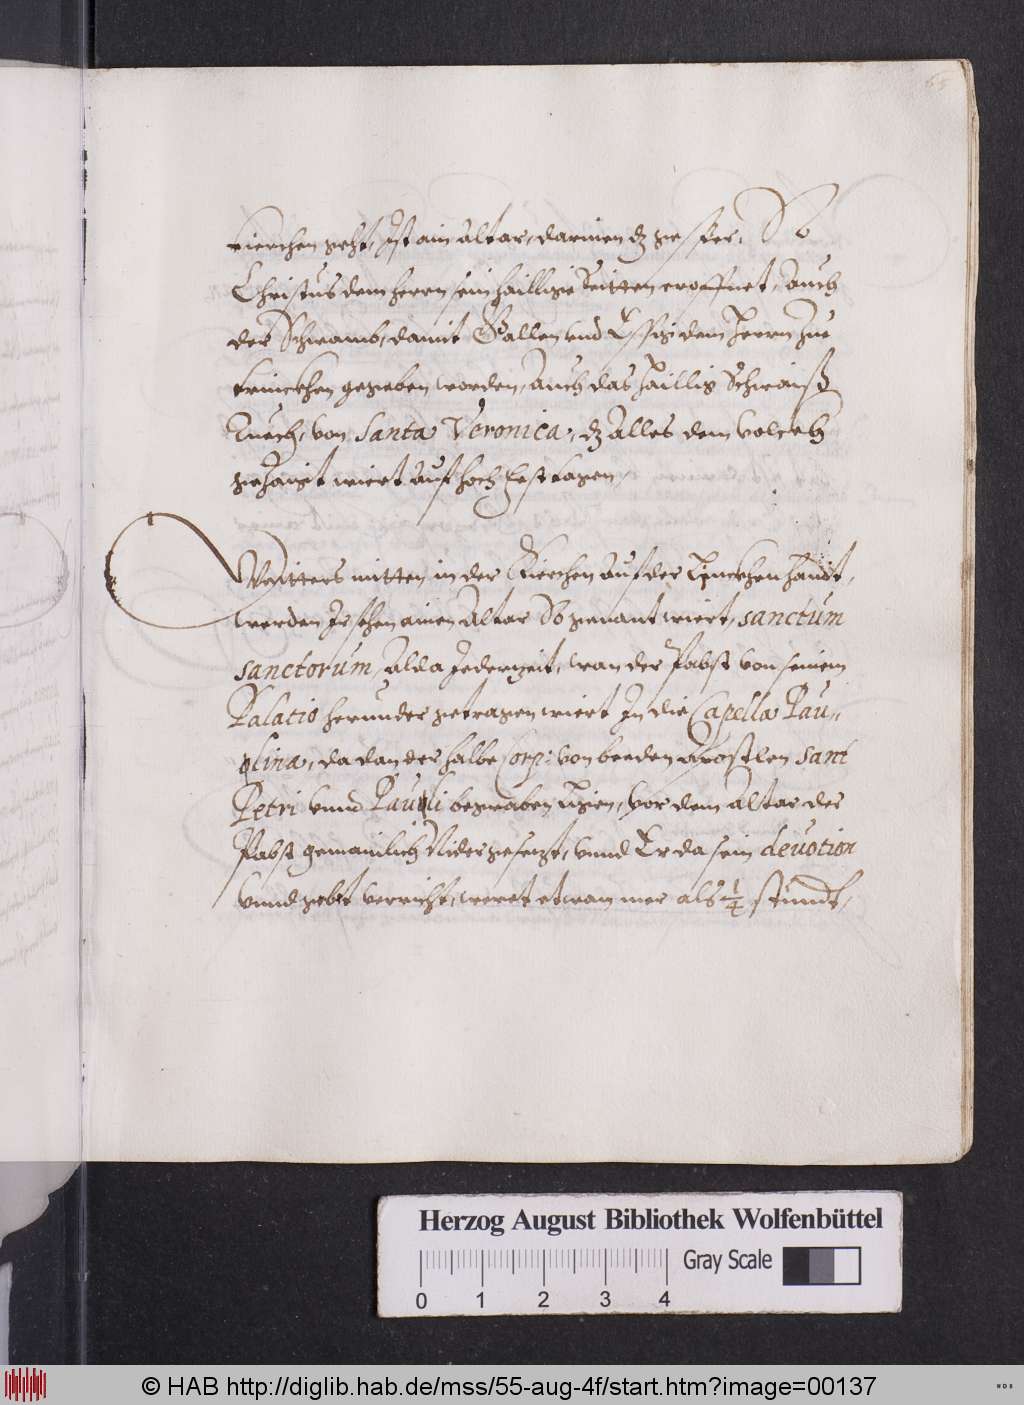 65
Kierchen geht, Ist ain Altar, darinen dz Speer, So
Christus dem herrn sein haillige Seitten eröffnet, Auch
der Schwamb, damit Gallen und Essig dem Herrn zue
trinckhen gegeben worden, Auch das haillig Schwaiß
Tuech, von Santa Veronica, dz Alles dem volckh
gezaigt wiert auf hoch Festtagen,
Weitters mitten in der Kierchen auf der Linckhen handt,
werden Ir sehen ainen Altar So genant wiert, sanctum
sanctorum, Alda Jederzeit, wan der Pabst von seinem
Palatio herunder getragen wiert In die Capella Pau„
lina, da dan der halbe Corp: von beeden Apostlen sant
Petri vnnd Pauli begraben Ligen, vor dem Altar der
Pabst gemainlich Nider gesezt, vnnd Er da sein deuotion
vnnd gebet verricht, weret etwan mer als 1/4 stundt,
Herzog August Bibliothek Wolfenbüttel
Gray Scale
0 1 2 3 4
© HAB http://diglib.hab.de/mss/55-aug-4f/start.htm?image=00137